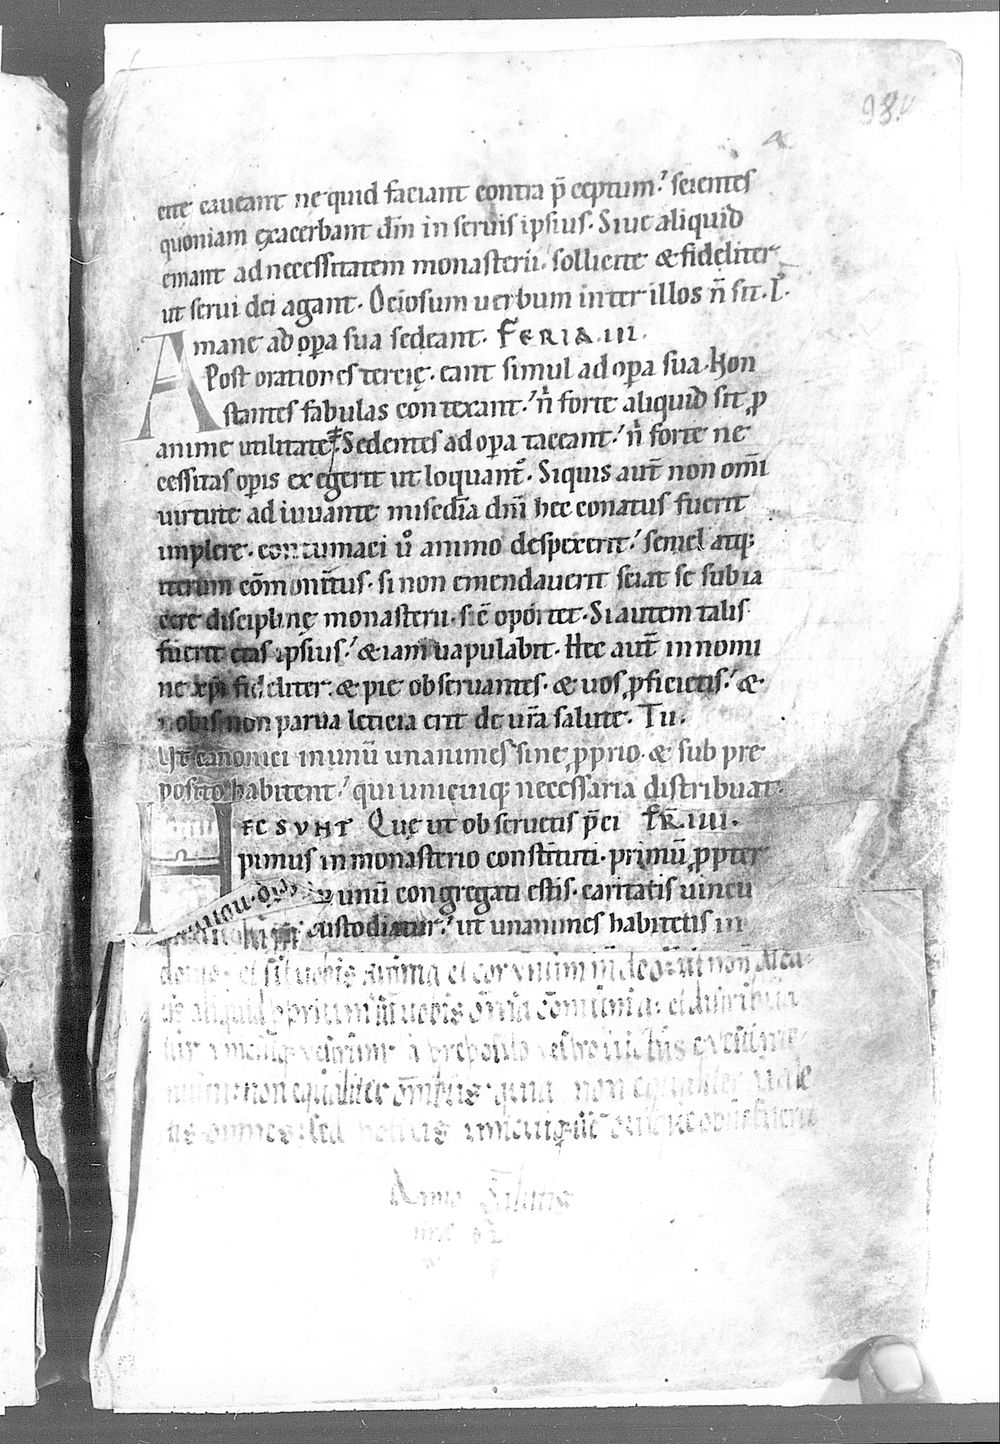 98.
cete caueant ne quid faciant contra p̄ceptum.' scientes
quoniam exacerbant dm̄ in seruis ipsius. Siue aliquid
emant ad necessitatem monasterii. sollicite & fideliter
ut serui dei agant. Ociosum uerbum inter illos ñ sit.
A mane ad oꝑa sua sedeant. FERIA. III.
Post orationes tercię. eant simul ad oꝑa sua. Non
stantes fabulas contexant.' ñ forte aliquid sit ꝓ
anime utilitate. Sedentes ad oꝑa taceant.' ñ forte ne
cessitas oꝑis exegerit ut loquant᷑. Siquis aut̄ non om̄i
uirtute adiuuante misc̄dia dñi hec conatus fuerit
implere. contumaci ů animo despexerit.' semel atq;
iterum cōmonitus. si non emendauerit sciat se subia
cere disciplinę monasterii. sic̄ oportet. Si autem talis
fuerit etas ipsius.' & iam uapulabit. Hec aut̄ in nomi
ne xp̄i fideliter. & pie obseruantes. & uos ꝓficietis.' &
nobis non parua leticia erit de ur̄a salute. Tu.
Ut canonici in unū unanimes sine ꝓprio. & sub pre
posito habitent.' qui unicuiq; necessaria distribuat.
HEC SVNT Quę ut obseruetis p̄ci FR. IIII.
pimus in monasterio constituti. primū ꝓpter
qd̄ in unū congregati estis. caritatis uincu
custodiatur.' ut unanimes habitetis in
domo. et sit uobis anima et cor vnum in deo.
aliquid ꝓprium uobis oīa cōmunia. et distribua
tur vnicuiq; vestrum a preposito vestro uictus
non equaliter omnibus. quia non equaliter uale
tis omnes. sed potius vnicuiq;
Anno Salutis